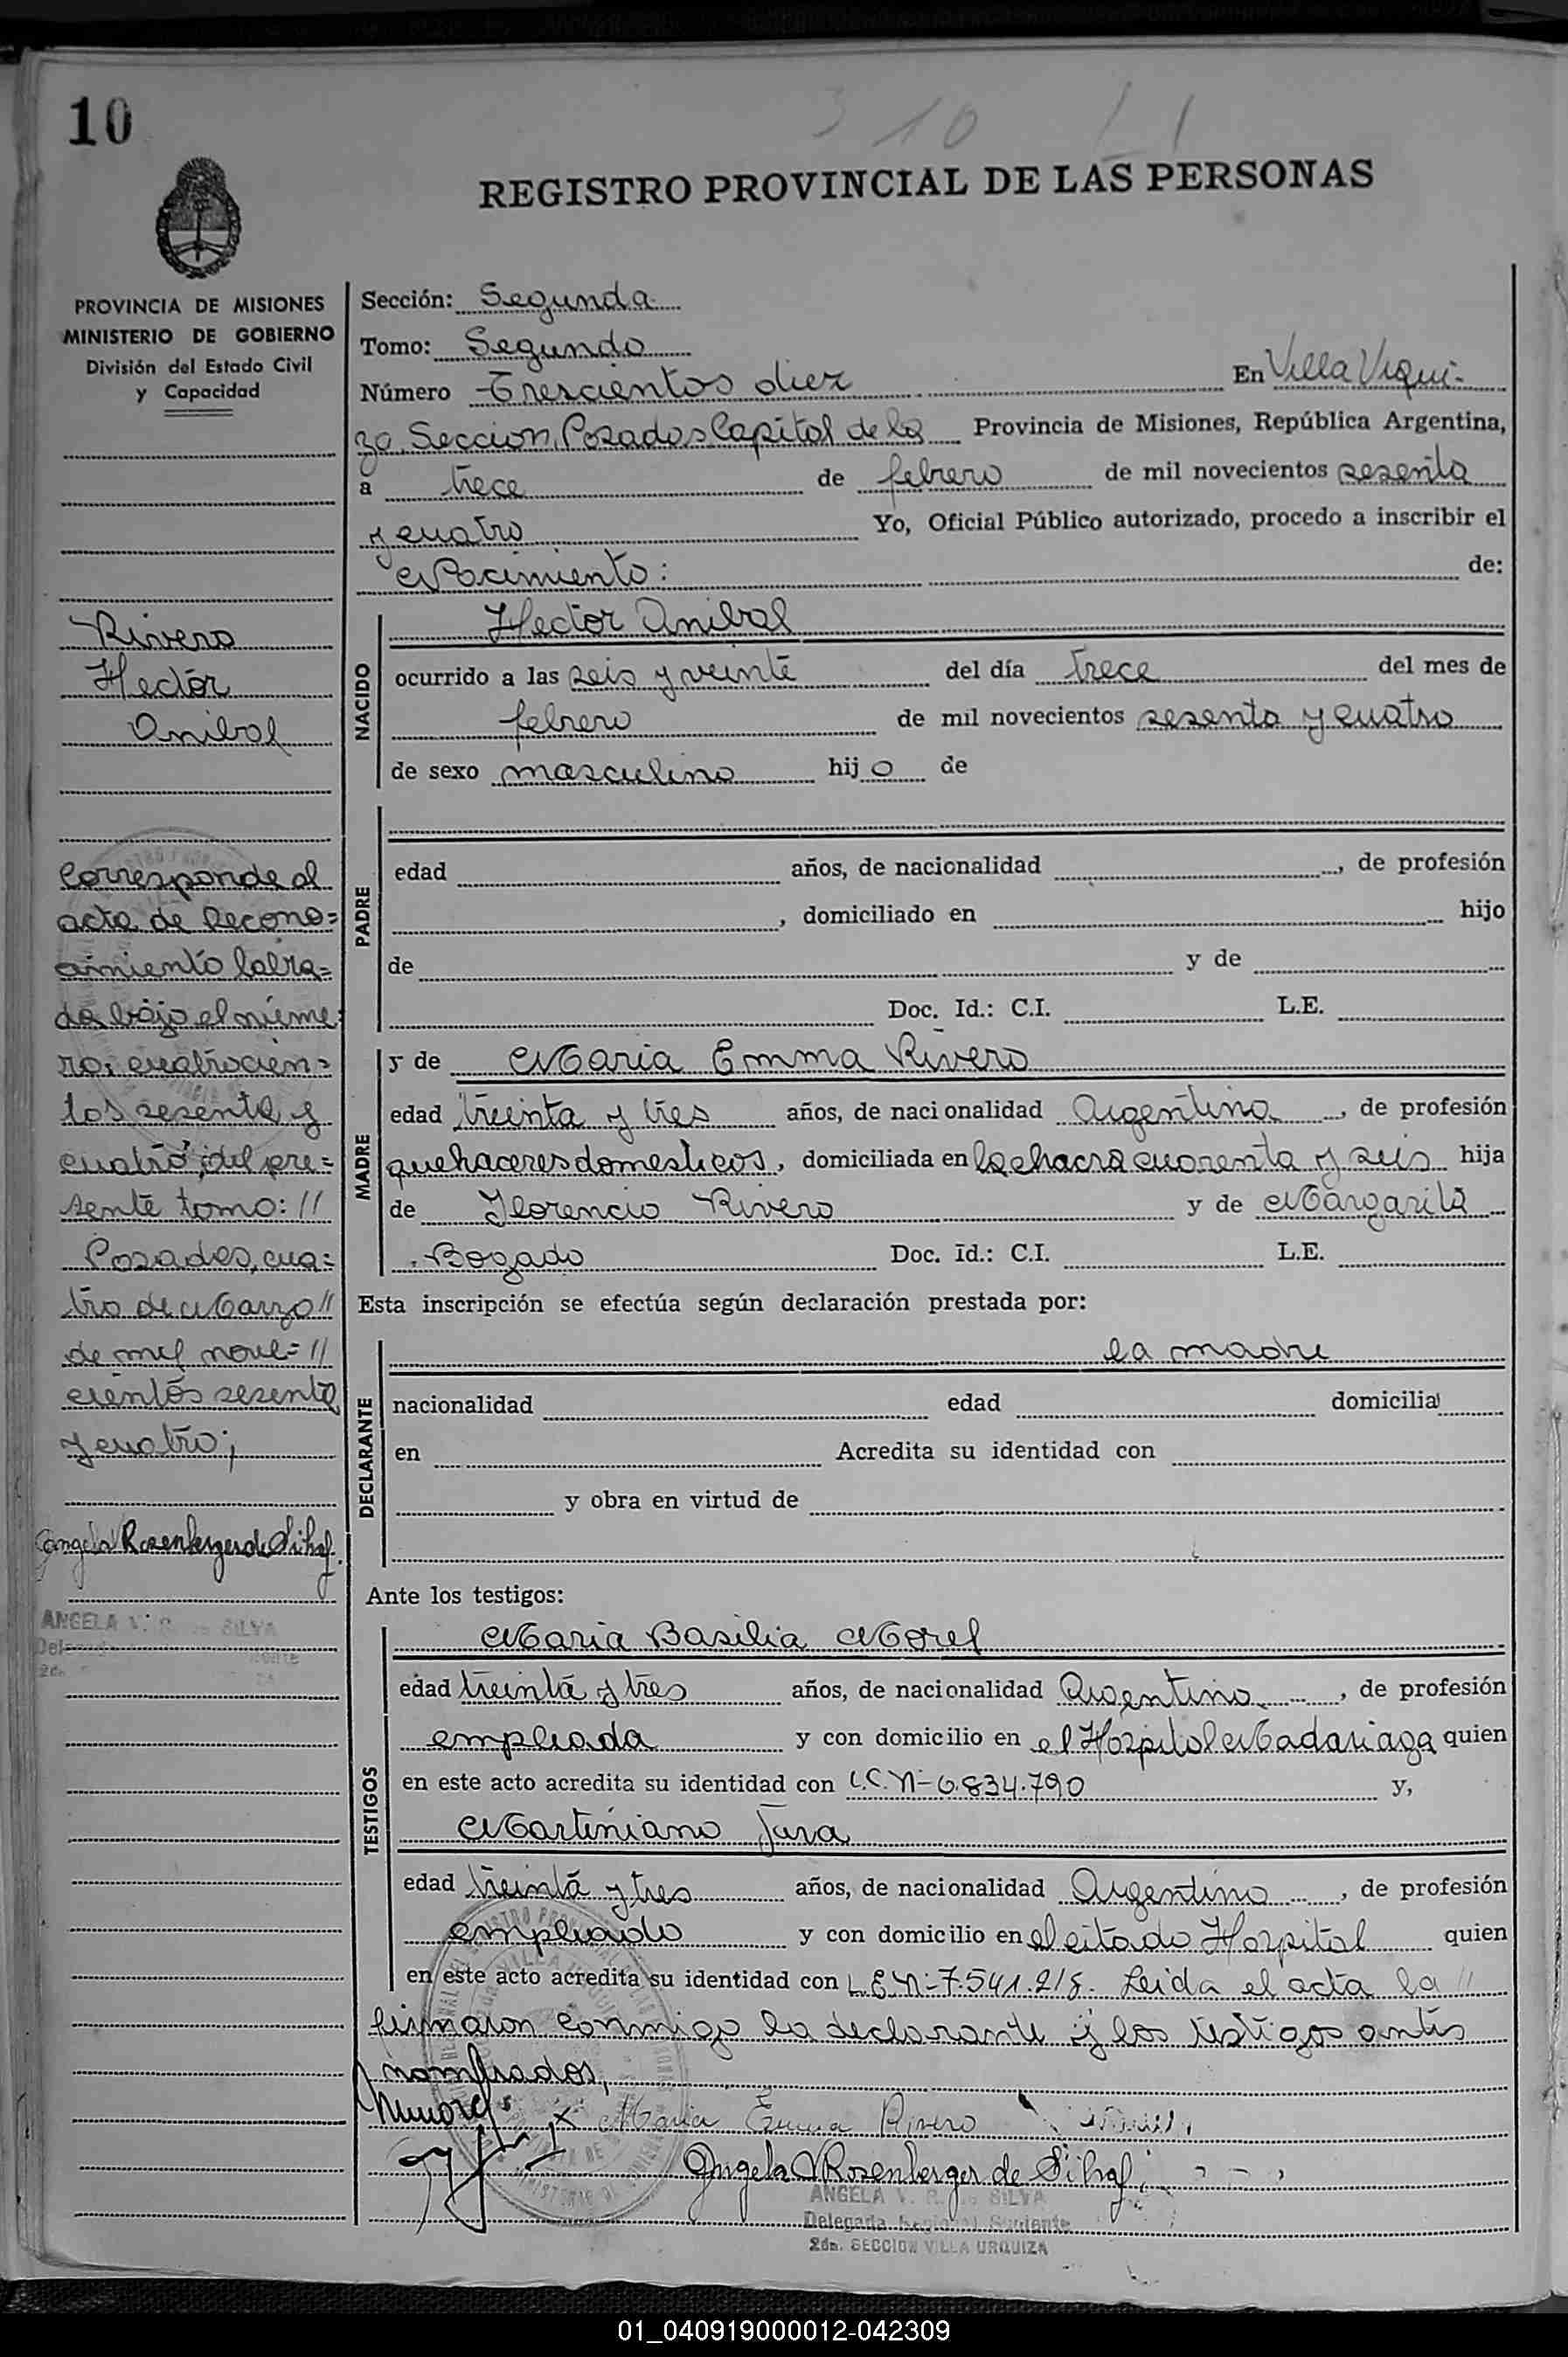 10
3 10
REGISTRO PROVINCIAL DE LAS PERSONAS
PROVINCIA DE MISIONES
MINISTERIO DE GOBIERNO
División del Estado Civil
y Capacidad
Rivero
Hector
Anibal
Corresponde al
acta de Recono=
cimiento labra=
da bajo el núme
ro: cuatrocien=
tos sesenta y
cuatro, del pre=
sente tomo: //
Posadas, cua=
tro de Marzo //
de mil nove= //
cientos sesenta
y cuatro;
Angela Rosenberger de Silva
ANGELA V. R. SILVA
Sección: Segunda
Tomo: Segundo
Número Trescientos diez En Villa Urqui-
za, Seccion, Posadas Capital de la Provincia de Misiones, República Argentina,
a trece de febrero de mil novecientos sesenta
y cuatro Yo, Oficial Público autorizado, procedo a inscribir el
Nacimiento: de:
NACIDO
Hector Anibal
ocurrido a las seis y veinte del día trece del mes de
febrero de mil novecientos sesenta y cuatro
de sexo masculino hij o de
PADRE
edad años, de nacionalidad , de profesión
, domiciliado en hijo
de y de
Doc. Id.: C.I. L.E.
MADRE
y de Maria Emma Rivero
edad treinta y tres años, de nacionalidad Argentina , de profesión
quehaceres domesticos, domiciliada en la chacra cuarenta y seis hija
de Florencio Rivero y de Margarita
Bogado Doc. Id.: C.I. L.E.
Esta inscripción se efectúa según declaración prestada por:
DECLARANTE
la madre
nacionalidad edad domicilia
en Acredita su identidad con
y obra en virtud de
Ante los testigos:
TESTIGOS
Maria Basilia Morel
edad treinta y tres años, de nacionalidad Argentina , de profesión
empleada y con domicilio en el Hospital Madariaga quien
en este acto acredita su identidad con L.C. Nº 6.834.790 y,
Martiniano Jara
edad treinta y tres años, de nacionalidad Argentino , de profesión
empleado y con domicilio en el citado Hospital quien
en este acto acredita su identidad con L.E. Nº 7.541.218. Leida el acta la //
firmaron conmigo la declarante y los testigos antes
nombrados,
Maria Emma Rivero
Angela V Rosenberger de Silva
ANGELA V. R. SILVA
Delegada Regional Suplente
2da. SECCION VILLA URQUIZA
01_040919000012-042309